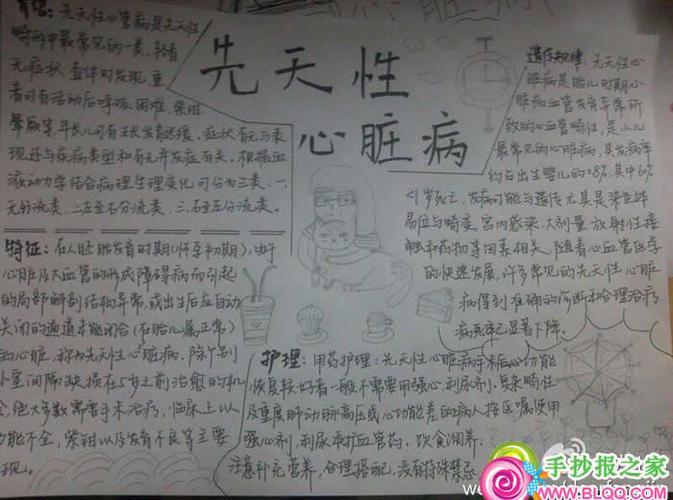 先天性
心脏病
先天性心血管病是先天性
畸形中最常见的一类。轻者
无症状,查体可发现,重
者可有活动后呼吸困难、紫绀、
晕厥等,年长儿可有生长发育迟缓。症状有无与表
现还与疾病类型和有无并发症有关。根据血
液动力学结合病理生理变化可分为三类:一、
无分流类,二左至右分流类,三、右至左分流类。
特征:在人胚胎发育时期(怀孕初期),由于
心脏及大血管的形成障碍而引起
的局部解剖结构异常,或出生后应自动
关闭的通道未能闭合(在胎儿属正常)
的心脏,称为先天性心脏病。除个别
小室间隔缺损在5岁之前治愈的机
会,绝大多数需要手术治疗,临床上以
功能不全,紫绀以及发育不良等主要
现。
遗传规律:先天性心
脏病是胎儿时期心
脏病血管发育异常所
致的心血管畸形,是小儿
最常见的心脏病,其发病率
约占出生婴儿的0.8%,其中60%
<1岁死亡,发病可能与遗传尤其是染色体
易位与畸变,宫内感染,大剂量放射性接
触和药物等因素相关,随着心血管医学
的快速发展,许多常见的先天性心脏
病得到准确的诊断和合理治疗
病死率已显著下降。
护理:用药护理:先天性心脏病手术后心功能
恢复较好者一般不需要用强心、利尿剂,复杂畸性
及重度肺动脉高压或心功能差的病人按医嘱使用
强心剂、利尿和扩血管药。饮食调养:
注意补充营养,合理搭配,没有特殊禁忌
手抄报之家
www.BLQQ.COM